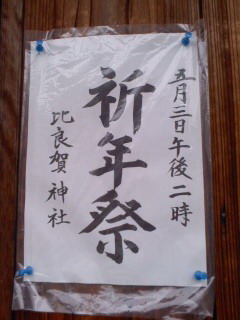 五月三日午後二時
祈年祭
比良賀神社